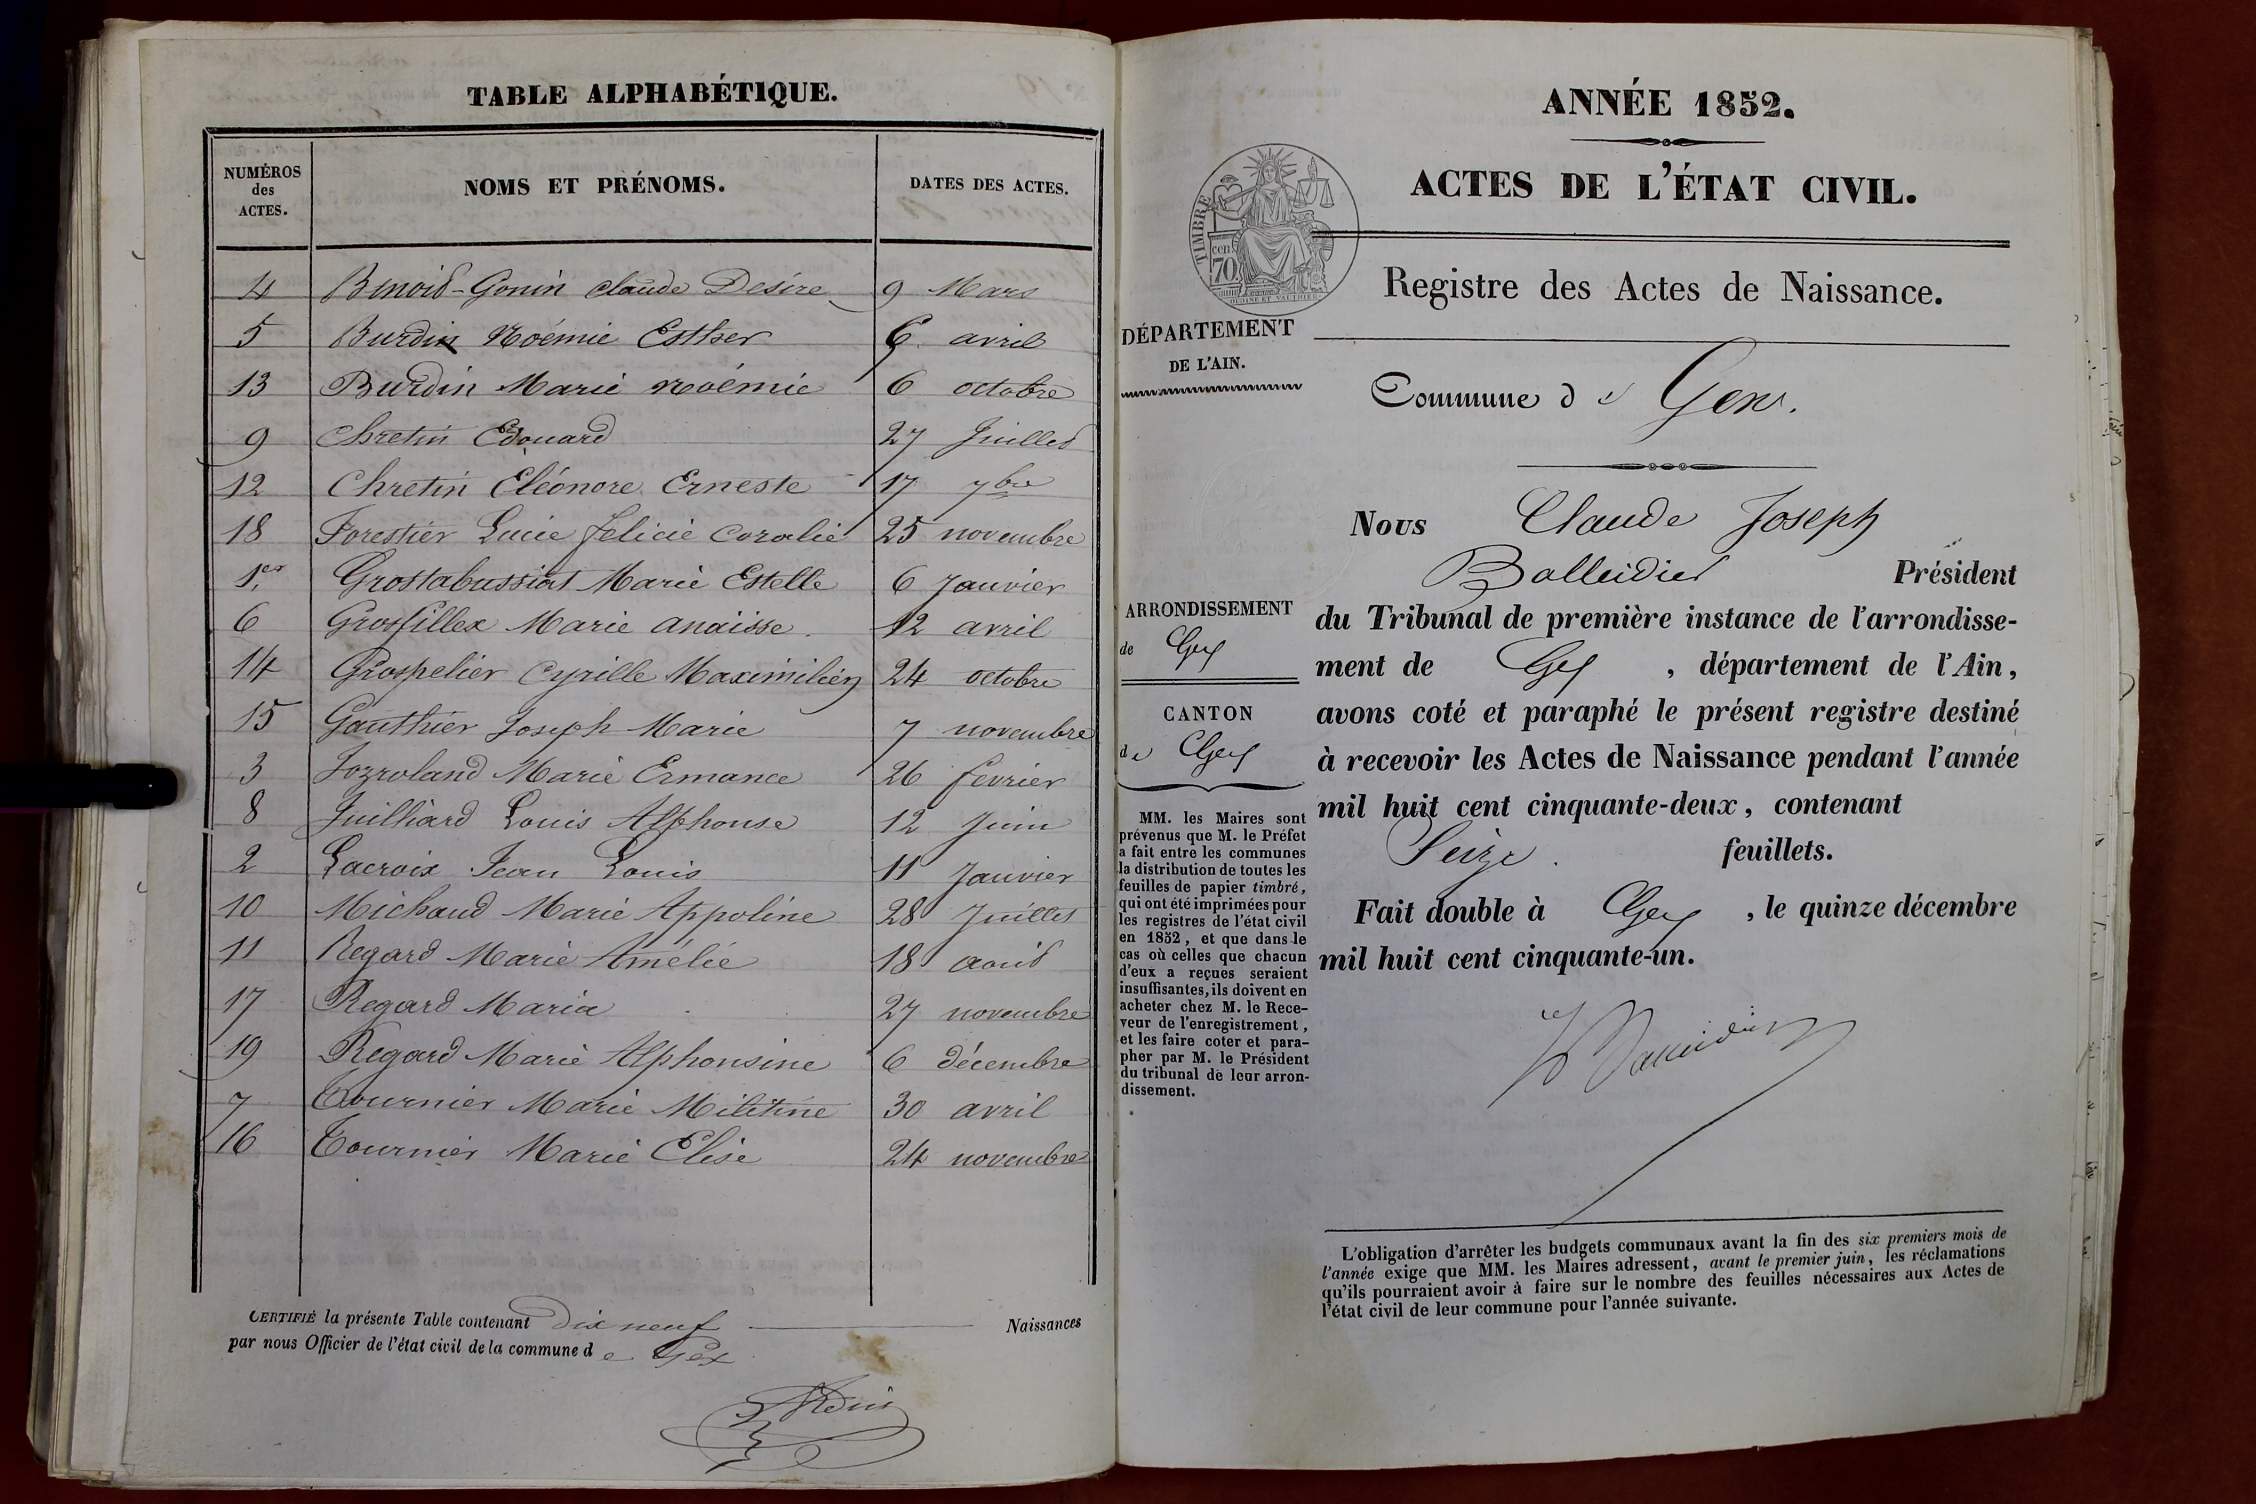 TABLE ALPHABÉTIQUE.
NUMÉROS des ACTES. NOMS ET PRÉNOMS. DATES DES ACTES.
4 Benoid-Gonin Claude Desire 9 Mars
5 Burdin Noémie Esther 6 avril
13 Burdin Marie Noémie 6 octobre
9 Chretin Edouard 27 Juillet
12 Chretin Eléonore Erneste 17 7bre
18 Forestier Lucie Felicie Coralie 25 novembre
1er Grostabussiat Marie Estelle 6 Janvier
6 Grosfillex Marie anaisse 12 avril
14 Grospelier Cyrille Maximilien 24 octobre
15 Gauthier Joseph Marie 7 novembre
3 Jozroland Marie Ermance 26 fevrier
8 Juilliard Louis Alphonse 12 Juin
2 Lacroix Jean Louis 11 Janvier
10 Michaud Marie Appoline 28 Juillet
11 Regard Marie Amélie 18 aout
17 Regard Maria 27 novembre
19 Regard Marie Alphonsine 6 décembre
7 Tournier Marie Militine 30 avril
16 Tournier Marie Elise 24 novembre
CERTIFIÉ la présente Table contenant Dix neuf Naissances
par nous Officier de l'état civil de la commune de Gex
ANNÉE 1852.
ACTES DE L'ÉTAT CIVIL.
TIMBRE
70 cen
OUDINE ET VAUTHIER
Registre des Actes de Naissance.
DÉPARTEMENT
DE L'AIN.
Commune de Gex.
Nous Claude Joseph
Balleidier Président
du Tribunal de première instance de l'arrondisse-
ment de Gex, département de l'Ain,
avons coté et paraphé le présent registre destiné
à recevoir les Actes de Naissance pendant l'année
mil huit cent cinquante-deux, contenant
Seize feuillets.
Fait double à Gex, le quinze décembre
mil huit cent cinquante-un.
ARRONDISSEMENT
de Gex
CANTON
de Gex
MM. les Maires sont
prévenus que M. le Préfet
a fait entre les communes
la distribution de toutes les
feuilles de papier timbré,
qui ont été imprimées pour
les registres de l'état civil
en 1852, et que dans le
cas où celles que chacun
d'eux a reçues seraient
insuffisantes, ils doivent en
acheter chez M. le Rece-
veur de l'enregistrement,
et les faire coter et para-
pher par M. le Président
du tribunal de leur arron-
dissement.
L'obligation d'arrêter les budgets communaux avant la fin des six premiers mois de
l'année exige que MM. les Maires adressent, avant le premier juin, les réclamations
qu'ils pourraient avoir à faire sur le nombre des feuilles nécessaires aux Actes de
l'état civil de leur commune pour l'année suivante.